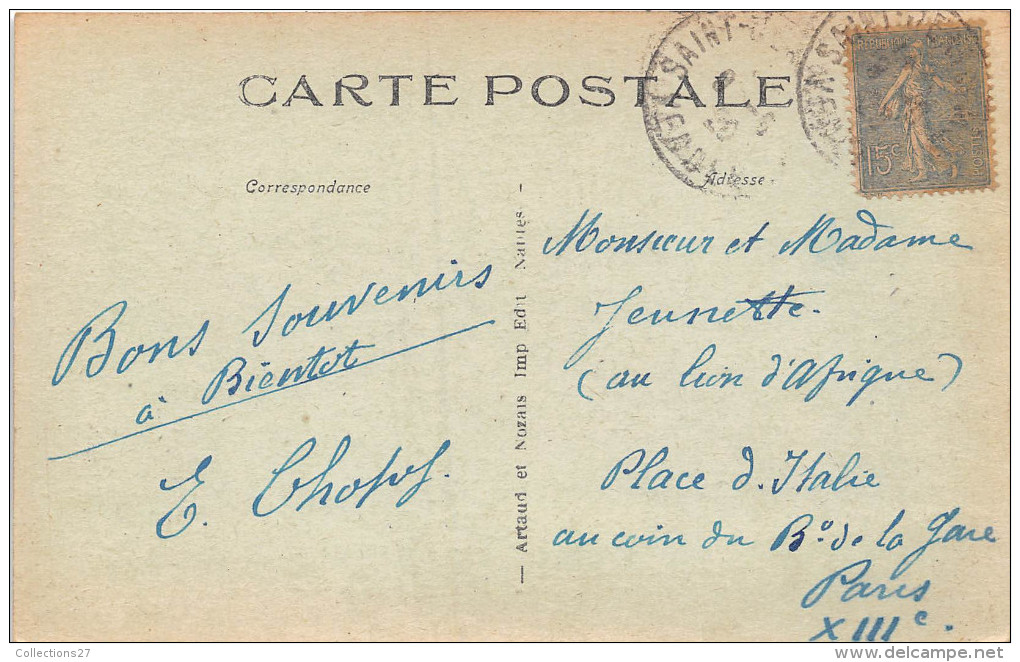 CARTE POSTALE
Correspondance
Adresse
REPUBLIQUE FRANÇAISE
15c
POSTES
SAINT-
VENDÉE
SAINT-
Bons Souvenirs
à Bientot
E.
Artaud et Nozais Imp Edit Nantes
Monsieur et Madame
Jeunette.
(au lion d'Afrique)
Place d. Italie
au coin du Bd. de la Gare
Paris
XIIIe.
Collections27
delcampe.net